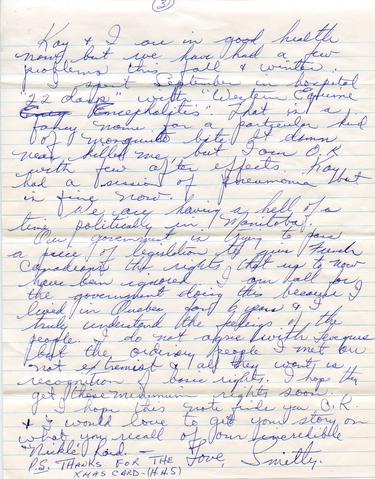 3
Kay & I are in good health
now, but we have had a few
problems this fall & winter.
I spent September in hospital
"22 days" with "Western Equine
Encephalitis." That is a
fancy name for a particular kind
of mosquito bite. It damn
near killed me, but I am O.K.
with few after effects. Kay
had a session of pneumonia but
is fine now.
We are having a hell of a
time politically in Manitoba.
Our government is trying to pass
a piece of legislation to give French
Canadians the rights that up to now
have been ignored. I am all for
the government doing this because I
lived in Quebec for 6 years & I
truly understand the feelings of the
people. I do not agree with Levesque
but the ordinary people I met are
not extremist & all they want is
recognition of basic rights. I hope they
get these minimum rights soon.
I hope this note finds you O.K.
& I would love to get your story on
what you recall of our incredible
"Nickle" raid. —
Love, Smitty.
P.S. THANKS FOR THE
XMAS CARD - (H.H.S)